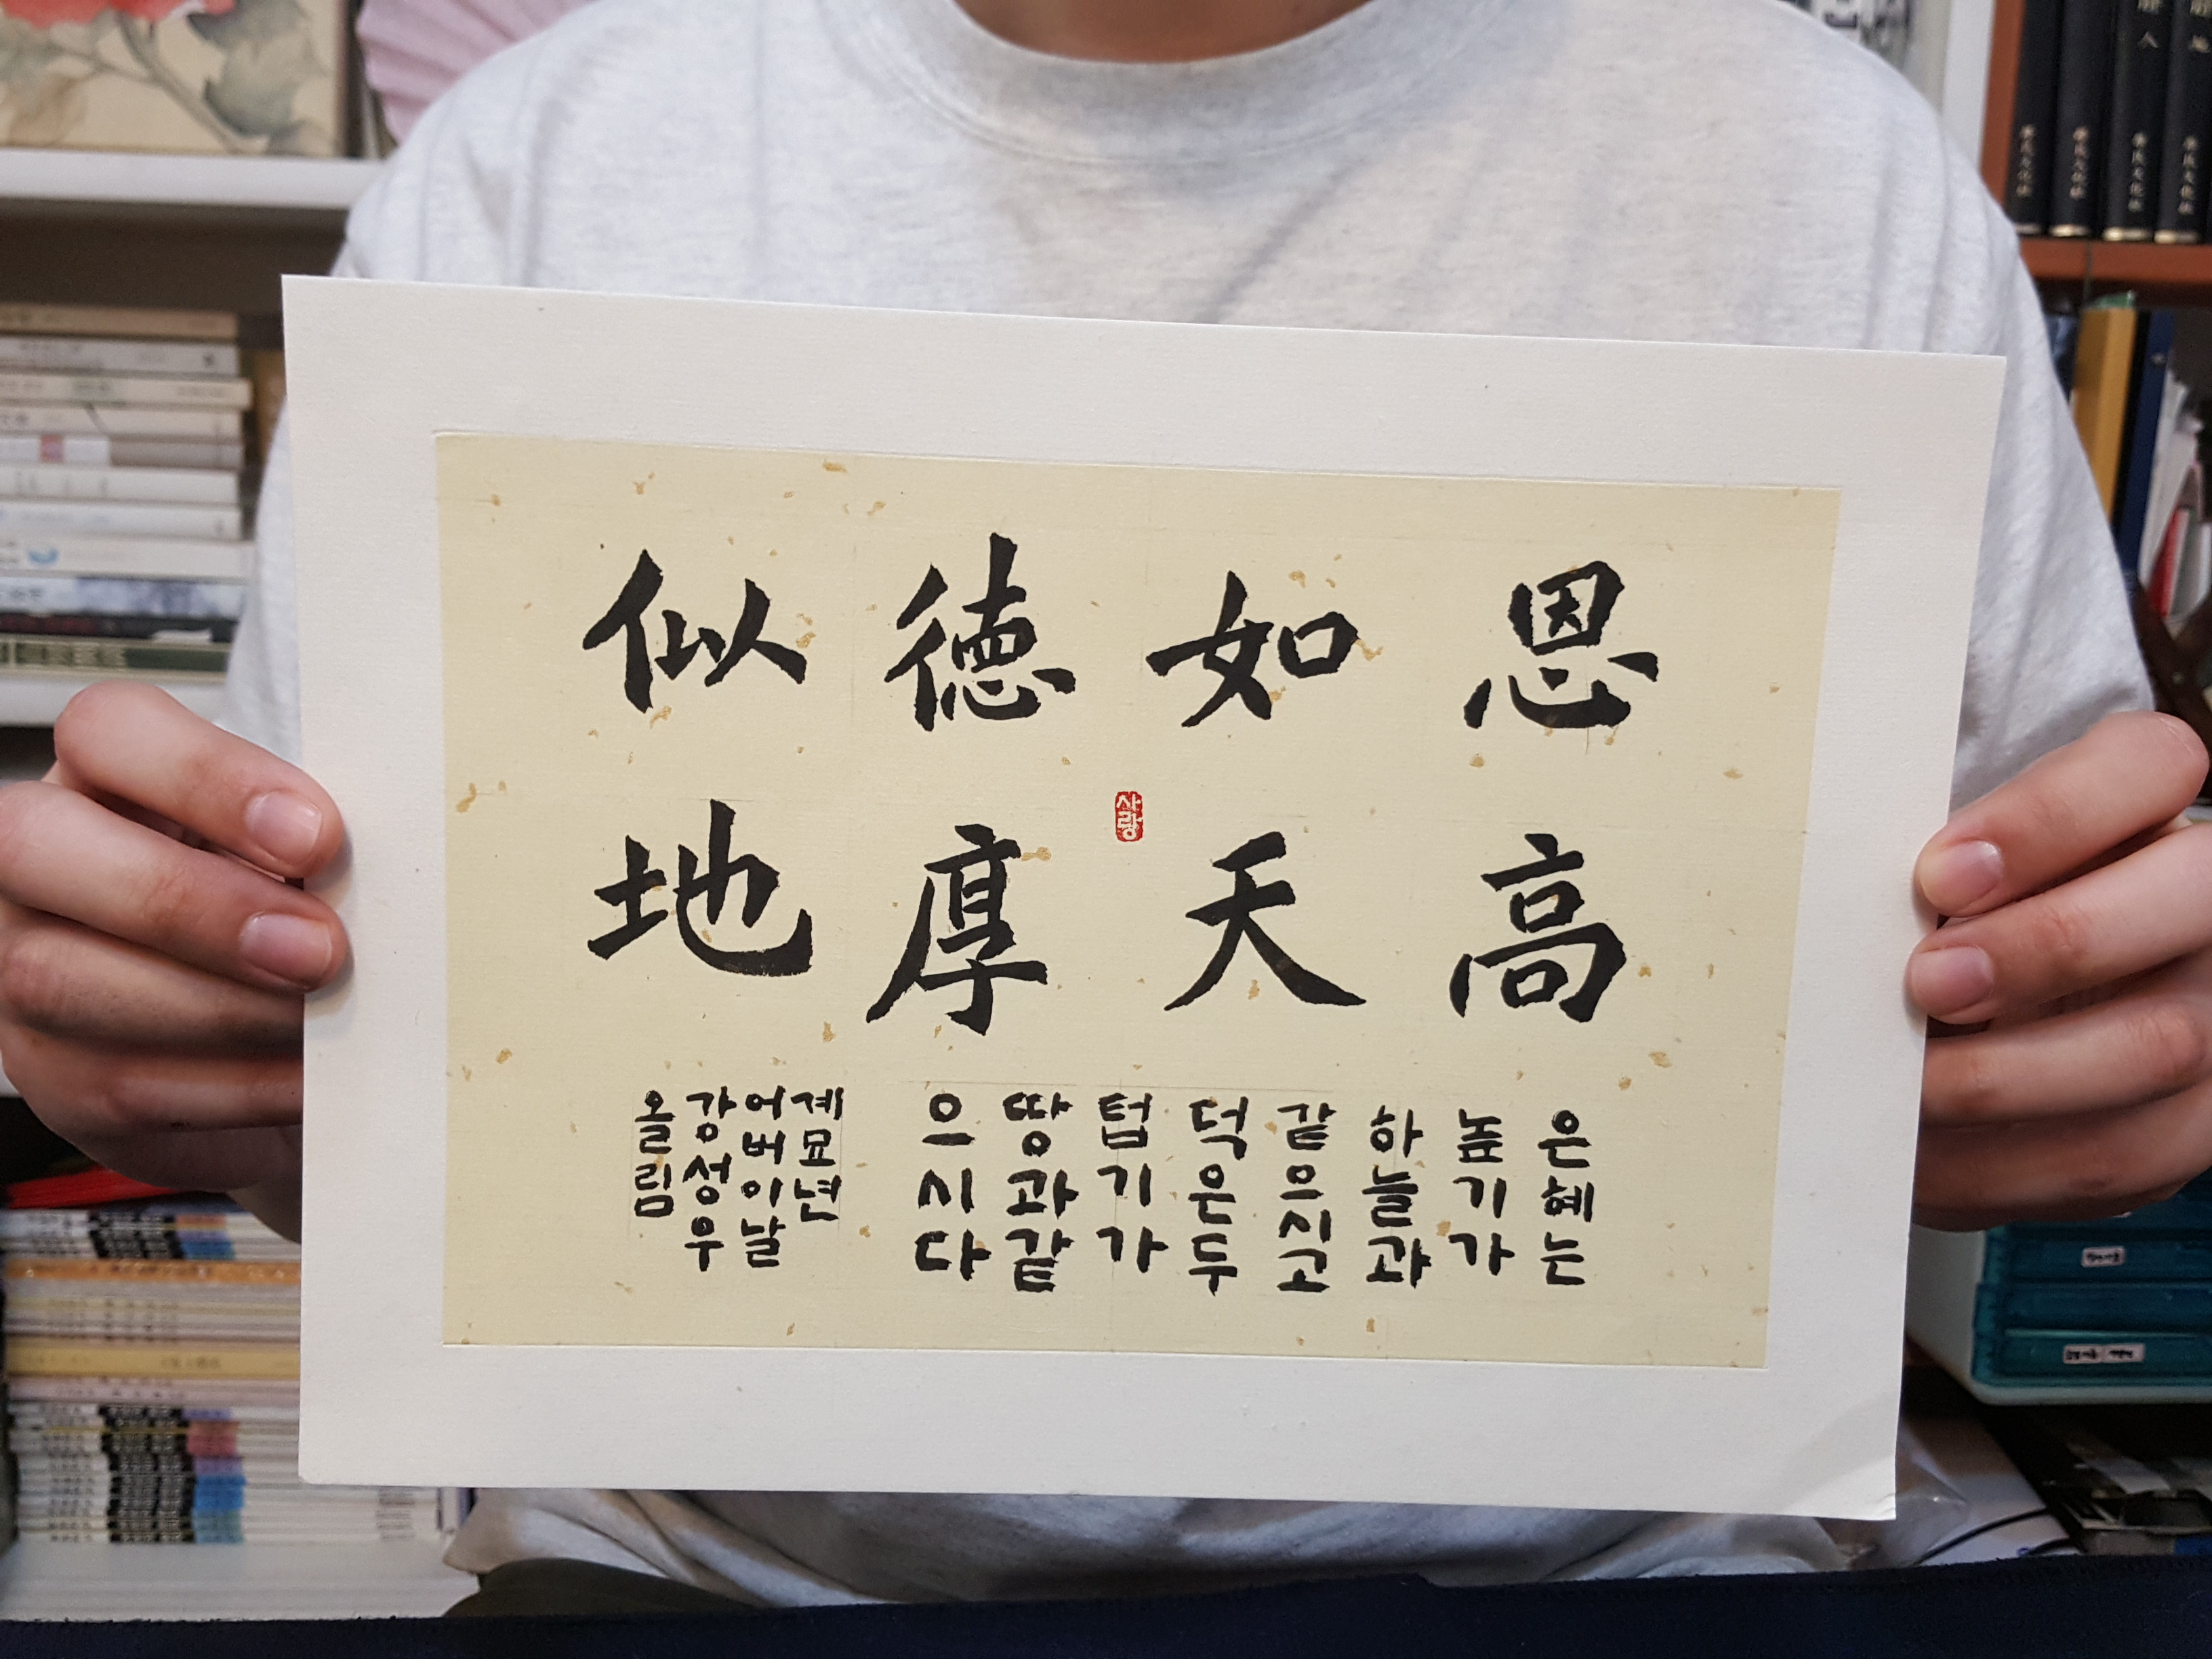 恩高
如天
德厚
似地
사랑
은혜는
높기가
하늘과
같으시고
덕은두
텁기가
땅과같
으시다
계묘년
어버이날
강성우
올림